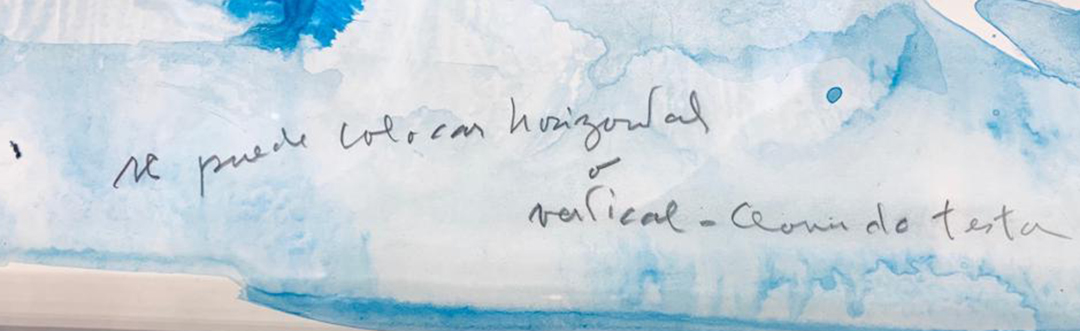 se puede colocar horizontal
o
vertical - Leonardo testa